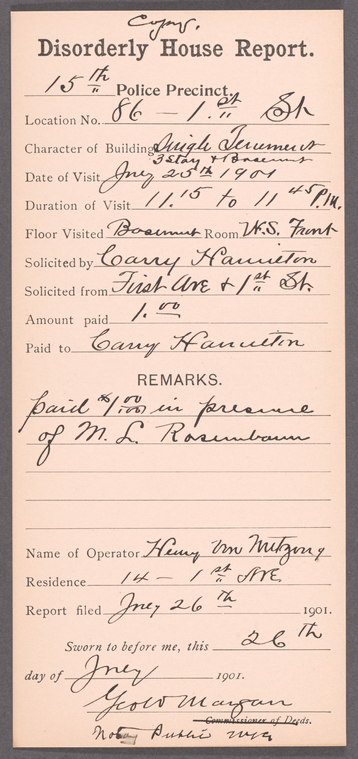 Copy.
Disorderly House Report.
15th Police Precinct.
Location No. 86 - 1.st St
Character of Building Single Tenement
3 Story & Basement
Date of Visit July 25th 1901
Duration of Visit 11.15 to 11 45 P.M.
Floor Visited Basement Room W.S. Front
Solicited by Carry Hamilton
Solicited from First Ave & 1st St.
Amount paid 1.00
Paid to Carry Hamilton
REMARKS.
paid $1.00 in presence
of M. L. Rosenbaum
Name of Operator Henry Von
Residence 14 - 1st Ave.
Report filed July 26th 1901.
Sworn to before me, this 26th
day of July 1901.
Geo W Morgan
Commissioner of Deeds.
Notary Public